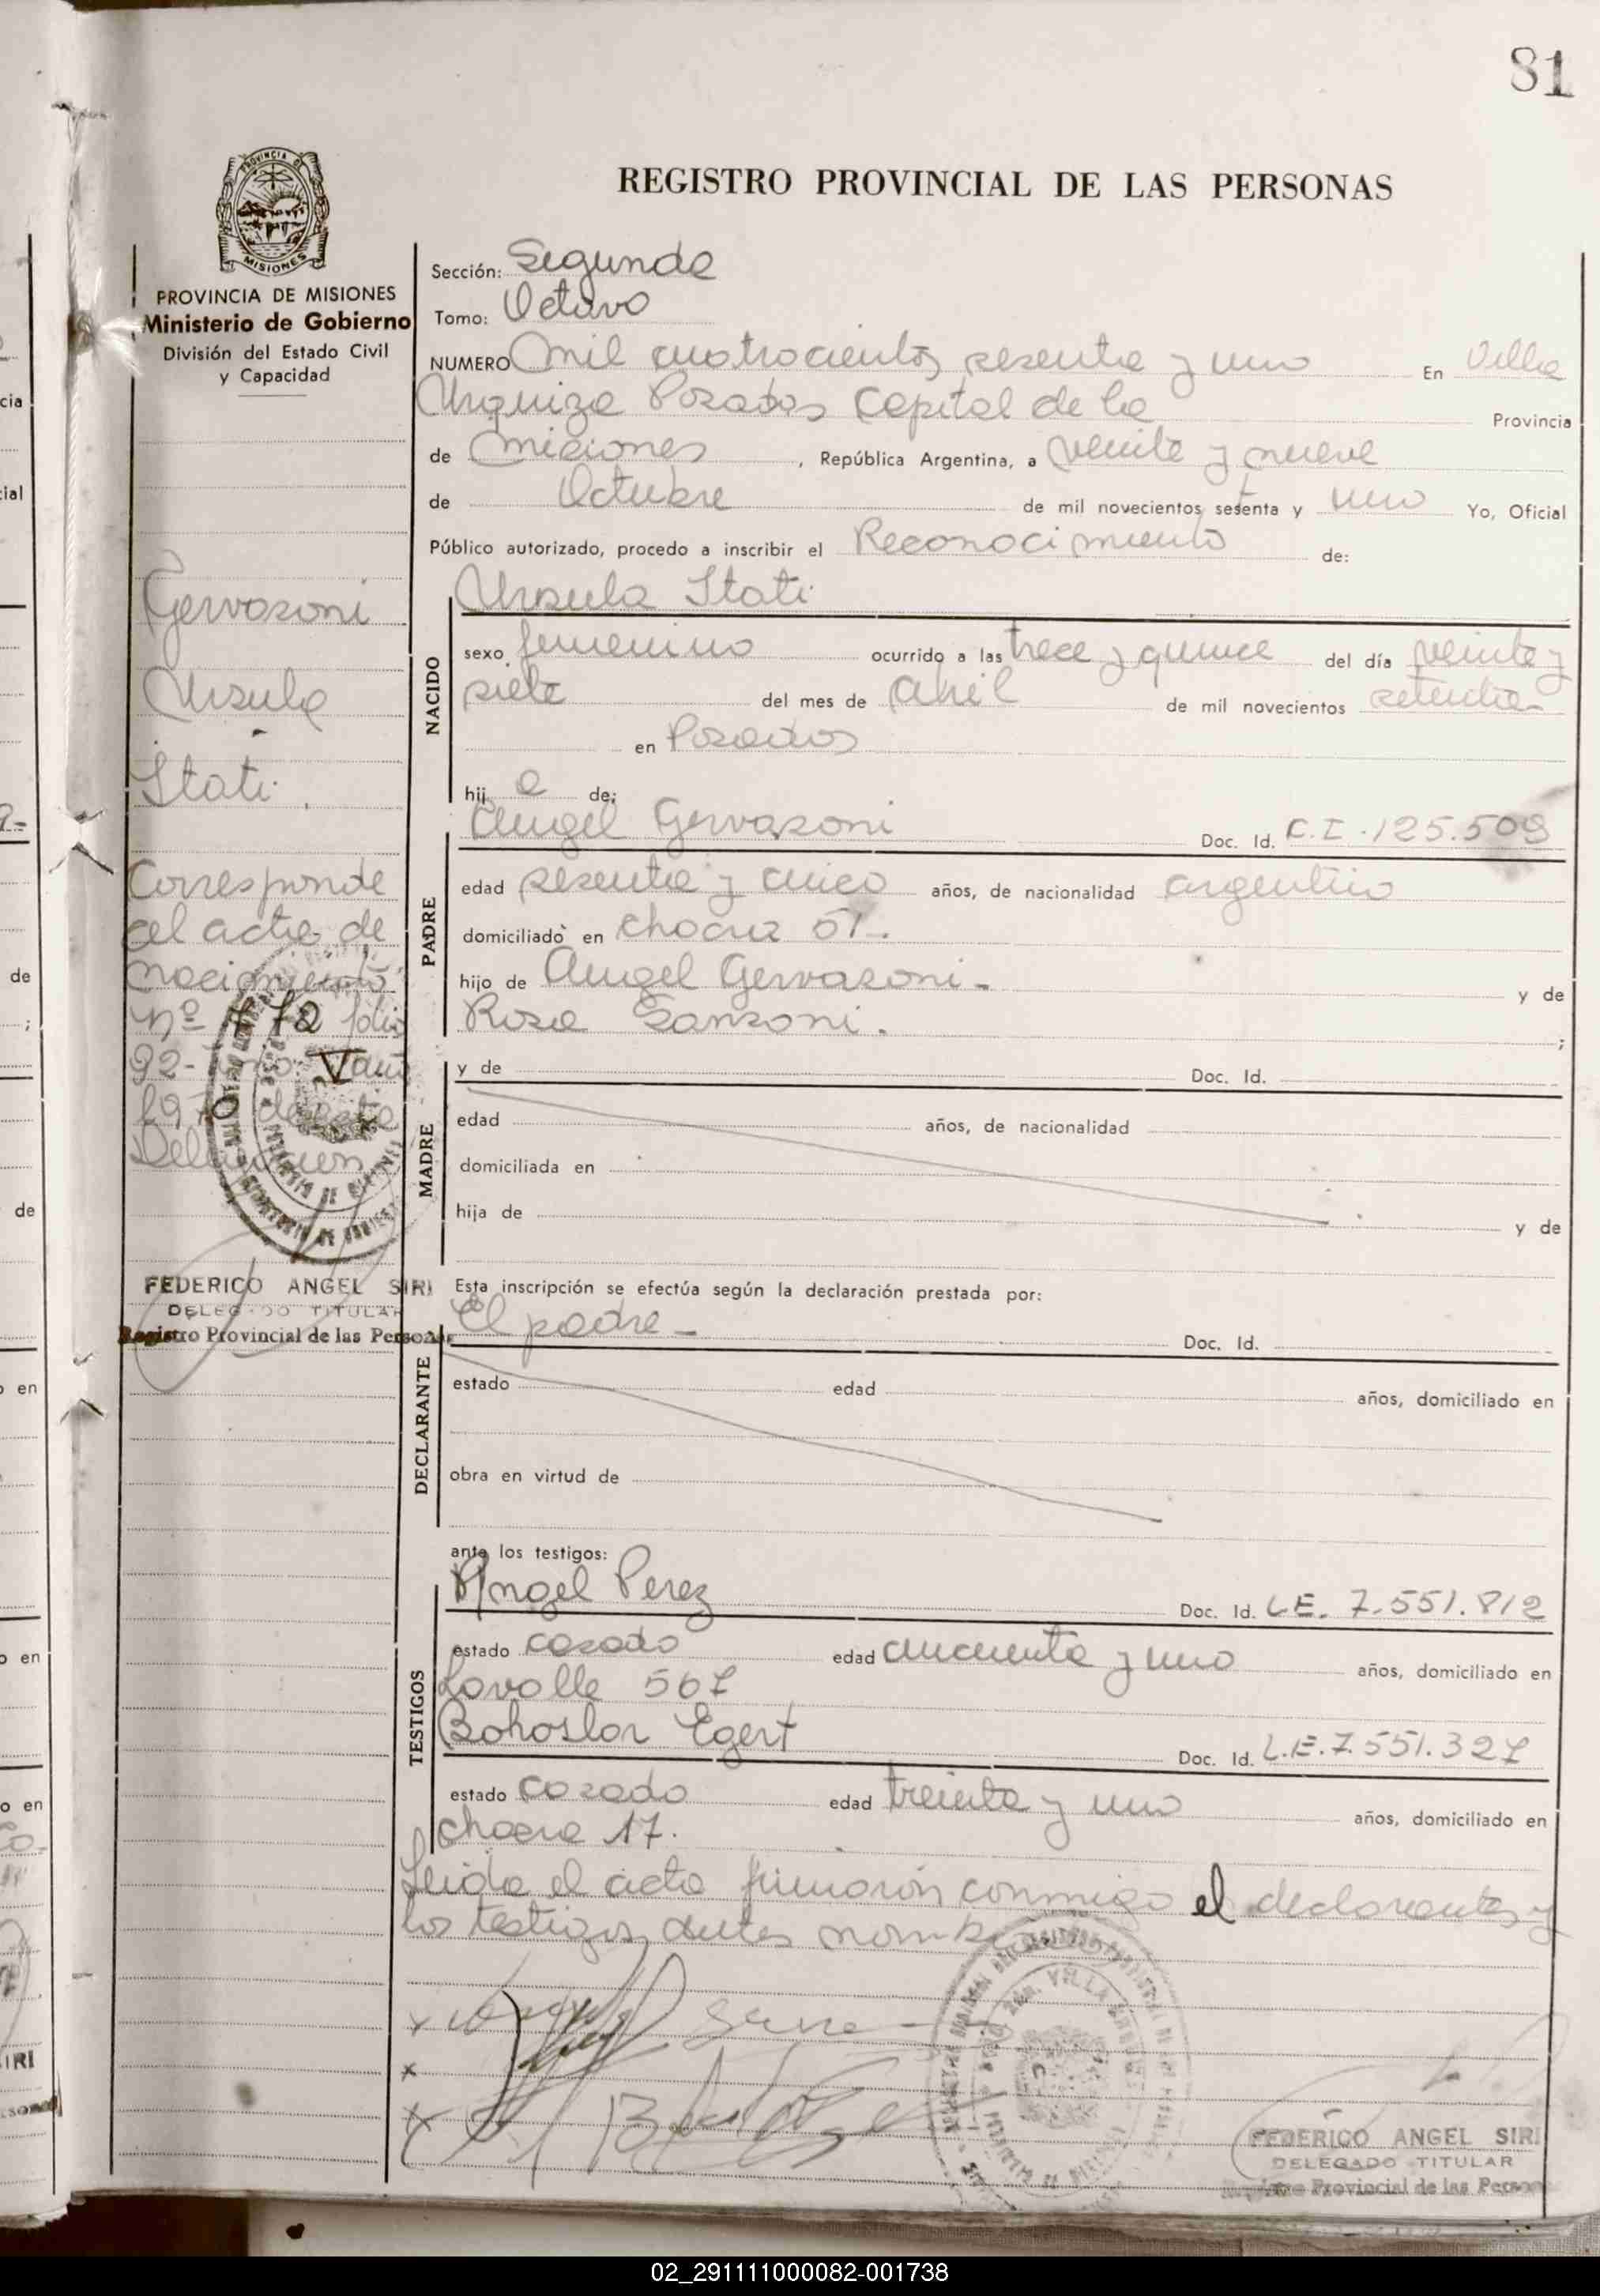 81
REGISTRO PROVINCIAL DE LAS PERSONAS
PROVINCIA DE MISIONES
Ministerio de Gobierno
División del Estado Civil
y Capacidad
Gervasoni
Ursula
Itati.
Corresponde
al acta de
nacimiento
Nº 472 folio
92- Tomo V año
1970 de esta
Delegacion
FEDERICO ANGEL SIRI
DELEGADO TITULAR
Registro Provincial de las Personas
Sección: Segunda
Tomo: Octavo
NUMERO Mil cuatrocientos sesenta y uno En Villa
Urquiza Posadas Capital de la Provincia
de Misiones, República Argentina, a veinte y nueve
de Octubre de mil novecientos setenta y uno Yo, Oficial
Público autorizado, procedo a inscribir el Reconocimiento de:
NACIDO
Ursula Itati
sexo femenino ocurrido a las trece y quince del día veinte y
siete del mes de Abril de mil novecientos setenta-
en Posadas
hija de:
PADRE
Angel Gervasoni Doc. Id. C.I.-125.509
edad sesenta y cinco años, de nacionalidad argentino
domiciliado en chacra 51.
hijo de Angel Gervasoni- y de
Rosa Sansoni. ;
MADRE
y de Doc. Id.
edad años, de nacionalidad
domiciliada en
hija de y de
Esta inscripción se efectúa según la declaración prestada por:
El padre- Doc. Id.
DECLARANTE
estado edad años, domiciliado en
obra en virtud de
ante los testigos:
TESTIGOS
Angel Perez Doc. Id. L.E. 7.551.812
estado casado edad cincuenta y uno años, domiciliado en
Lavalle 567
Bohoslor Egert Doc. Id. L.E.7.551.327
estado casado edad treinta y uno años, domiciliado en
chacra 17.
Leida el acta firmaron conmigo el declarante y
los testigos antes
FEDERICO ANGEL SIRI
DELEGADO TITULAR
Provincial de las Person
02_291111000082-001738